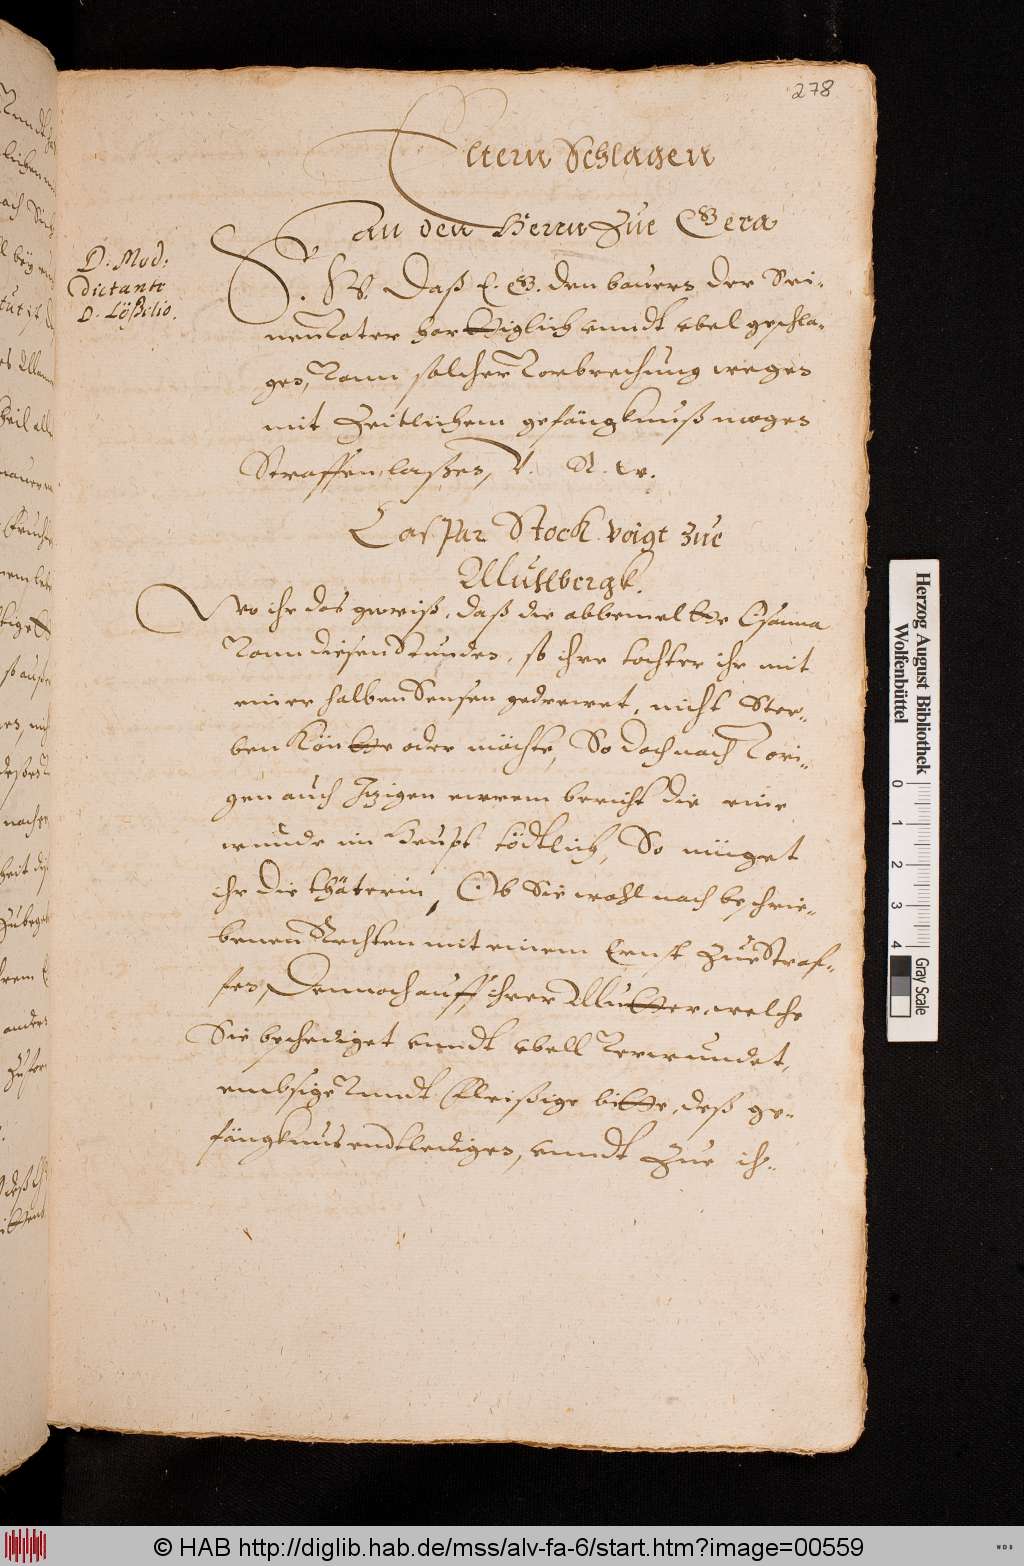 278
Eltern Schlagen
An den Herrn zue Gera
D. Mod:
dictante
D. Lößelio.
S. W. Daß E. G. den bauern der Sei-
nen Vater har iglich unndt vbel geschla-
gen, Vonn solcher Vorbrechung wegen
mit Zeitlichem gefängknuß mögen
Straffen laßen, V. R. w.
Caspar Stock voigt zue
Mulbergk.
Wo ihr das gewiß, daß die abbemeltte Osanna
Vonn diesen Wunden, so ihre tochter ihr mit
einer halben Sensen gedrewet, nicht Ster-
ben Köntte oder möchte, So doch nach Vori-
gen auch Itzigen ewrem bericht die eine
wunde im Heupt tödtlich, So müget
ihr die thäterin, Ob Sie wohl nach beschrie-
benen Rechten mit einem Ernst zue Straf-
fen, Dennoch auff ihrer Mutter, welche
Sie beschediget unndt vbell Verwundet,
embsige Vnndt fleißige bitte, deß ge-
fängknus entledigen, unndt zue ih-
Herzog August Bibliothek
Wolfenbüttel
0 1 2 3 4
Gray Scale
© HAB http://diglib.hab.de/mss/alv-fa-6/start.htm?image=00559